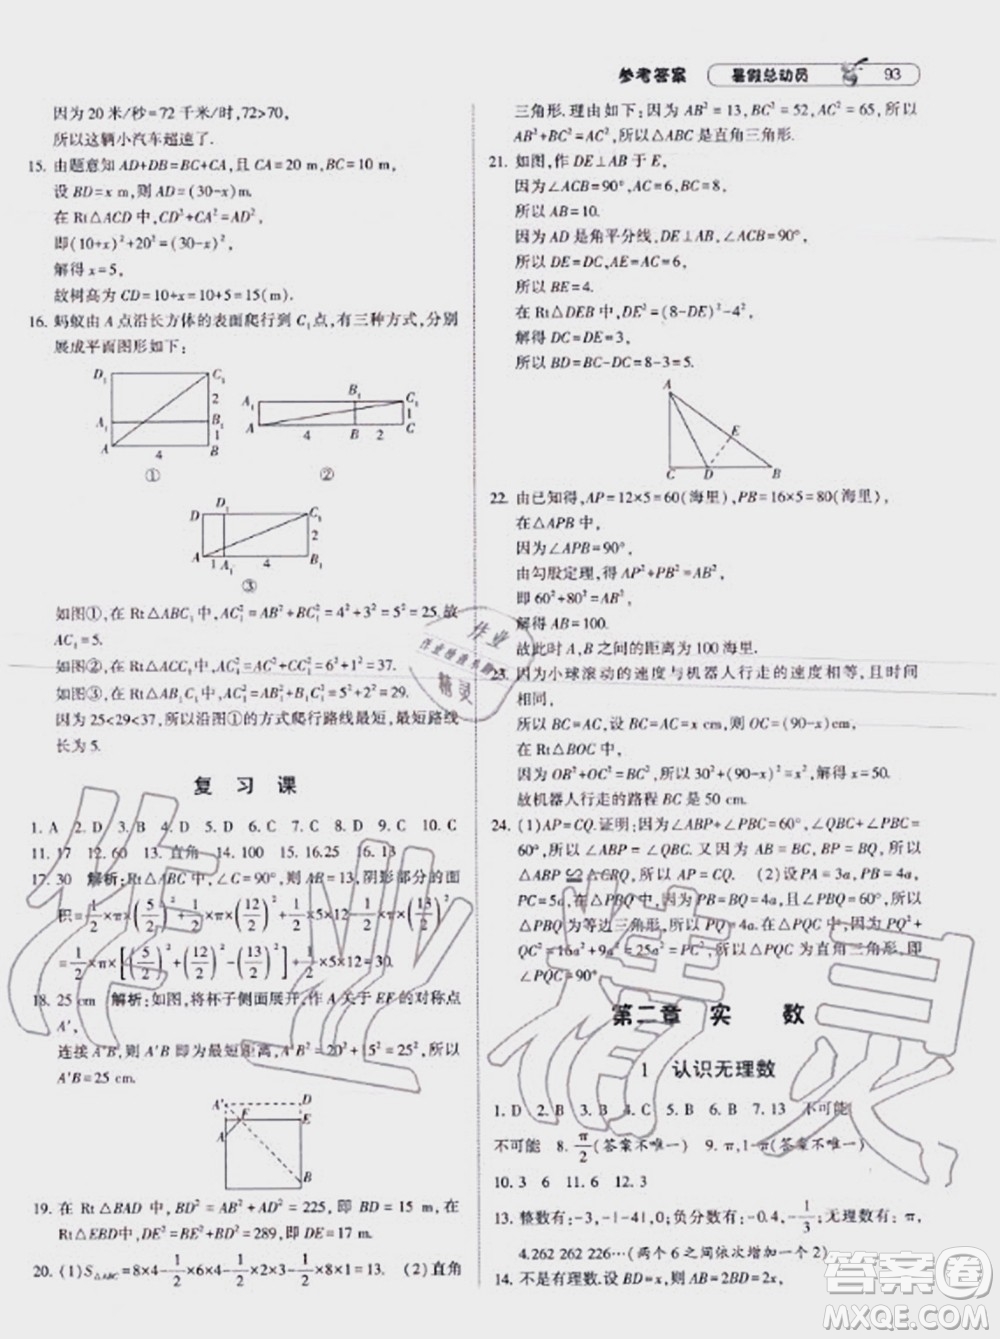 参考答案 暑假总动员 93
因为 20 米/秒=72 千米/时,72>70,
所以这辆小汽车超速了.
15. 由题意知 AD+DB=BC+CA,且 CA=20 m,BC=10 m,
设 BD=x m,则 AD=(30-x)m.
在 Rt△ACD 中,CD²+CA²=AD²,
即(10+x)²+20²=(30-x)²,
解得 x=5,
故树高为 CD=10+x=10+5=15(m).
16. 蚂蚁由 A 点沿长方体的表面爬行到 C₁点,有三种方式,分别
展成平面图形如下:
D₁ C₁ 2 A₁ B₁ 1 A 4 B
①
B₁ A₁ C₁ 1 A 4 B 2 C
②
D D₁ C₁ 2 A 1 A₁ 4 B₁
③
如图①,在 Rt△ABC₁中,AC₁²=AB²+BC₁²=4²+3²=5²=25.故
AC₁=5.
如图②,在 Rt△ACC₁中,AC₁²=AC²+CC₁²=6²+1²=37.
如图③,在 Rt△AB₁C₁中,AC₁²=AB₁²+B₁C₁²=5²+2²=29.
因为 25<29<37,所以沿图①的方式爬行路线最短,最短路线
长为 5.
复 习 课
1. A 2. D 3. D 4. B 5. D 6. C 7. C 8. D 9. C 10. C
11. 17 12. 60 13. 直角 14. 100 15. 16.25 16. 13
17. 30 解析:在 Rt△ABC 中,∠C=90°,则 AB=13,阴影部分的面
积=1/2×π×(5/2)²+1/2×π×(12/2)²+1/2×5×12-1/2×π×(13/2)²
=1/2×π×[(5/2)²+(12/2)²-(13/2)²]+1/2×5×12=30.
18. 25 cm 解析:如图,将杯子侧面展开,作 A 关于 EF 的对称点
A′,
连接 A′B,则 A′B 为最短距离,A′B²=A′D²+BD²=20²+15²,所以
A′B=25 cm.
A′ D F E A B
19. 在 Rt△BAD 中,BD²=AB²+AD²=225,即 BD=15 m,在
Rt△EBD 中,DE²=BD²+EB²=289,即 DE=17 m.
20. (1)S△ABC=8×4-1/2×6×4-1/2×8×1-1/2×2×3=13. (2)直角
三角形.理由如下:因为 AB²=13,BC²=52,AC²=65,所以
AB²+BC²=AC²,所以△ABC 是直角三角形.
21. 如图,作 DE⊥AB 于 E,
因为∠ACB=90°,AC=6,BC=8,
所以 AB=10.
因为 AD 是角平分线,DE⊥AB,∠ACB=90°,
所以 DE=DC,AE=AC=6,
所以 BE=4.
在 Rt△DEB 中,DE²=(8-DE)²-4²,
解得 DE=DC=3,
所以 BD=BC-DC=8-3=5.
A E C D B
22. 由已知得,AP=12×5=60(海里),PB=16×5=80(海里),
在△APB 中,
因为∠APB=90°,
由勾股定理,得 AP²+PB²=AB²,
即 60²+80²=AB²,
解得 AB=100.
故此时 A,B 之间的距离为 100 海里.
23. 因为小球滚动的速度与机器人行走的速度相等,且时间
相同,
所以 BC=AC,设 BC=AC=x cm,则 OC=(90-x)cm.
在 Rt△BOC 中,
因为 OB²+OC²=BC²,所以 30²+(90-x)²=x²,解得 x=50.
故机器人行走的路程 BC 是 50 cm.
24. (1)AP=CQ.证明:因为∠ABP+∠PBC=60°,∠QBC+∠PBC=
60°,所以∠ABP=∠QBC.又因为 AB=BC,BP=BQ,所以
△ABP≌△CBQ,所以 AP=CQ. (2)设 PA=3a,PB=4a,
PC=5a,在△PBQ 中,因为 PB=BQ=4a,∠PBQ=60°,所以
△PBQ 为等边三角形,所以 PQ=4a.在△PQC 中,因为 PQ²+
QC²=16a²+9a²=25a²=PC²,所以△PQC 为直角三角形,即
∠PQC=90°.
第二章 实 数
1 认识无理数
1. D 2. B 3. B 4. C 5. B 6. B 7. 13 不可能
不可能 8. π/2(答案不唯一) 9. π,1-π(答案不唯一)
10. 3 6 11. 6 12. 3
13. 整数有:-3,-|-4|,0;负分数有:-0.4,-1/3;无理数有:π,
4.262 262 226…(两个 6 之间依次增加一个 2)
14. 不是有理数.设 BD=x,则在 Rt△BDC 中,x²=2²+2²,
作业 作业检查小助手 精灵
作业精灵
答案圈
MXQE.COM